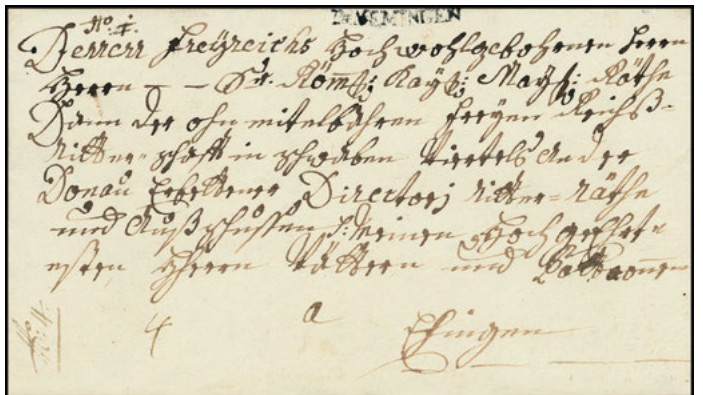 DE MEMINGEN
No: 1.
Denen Freyreichs Hochwohlgebohrnen Herrn
Herrn - - Sr. Röm: Kays: May: Räthe
Dann der ohnmitelbahren freyen Reichs-
Ritterschafft in Schwaben Viertels an der
Donau Erbettener Directorj Ritter-Räthe
und Außschussen p: Meinen Hochgeehrt-
esten Herrn Vättern und Patronen
4 a Ehingen